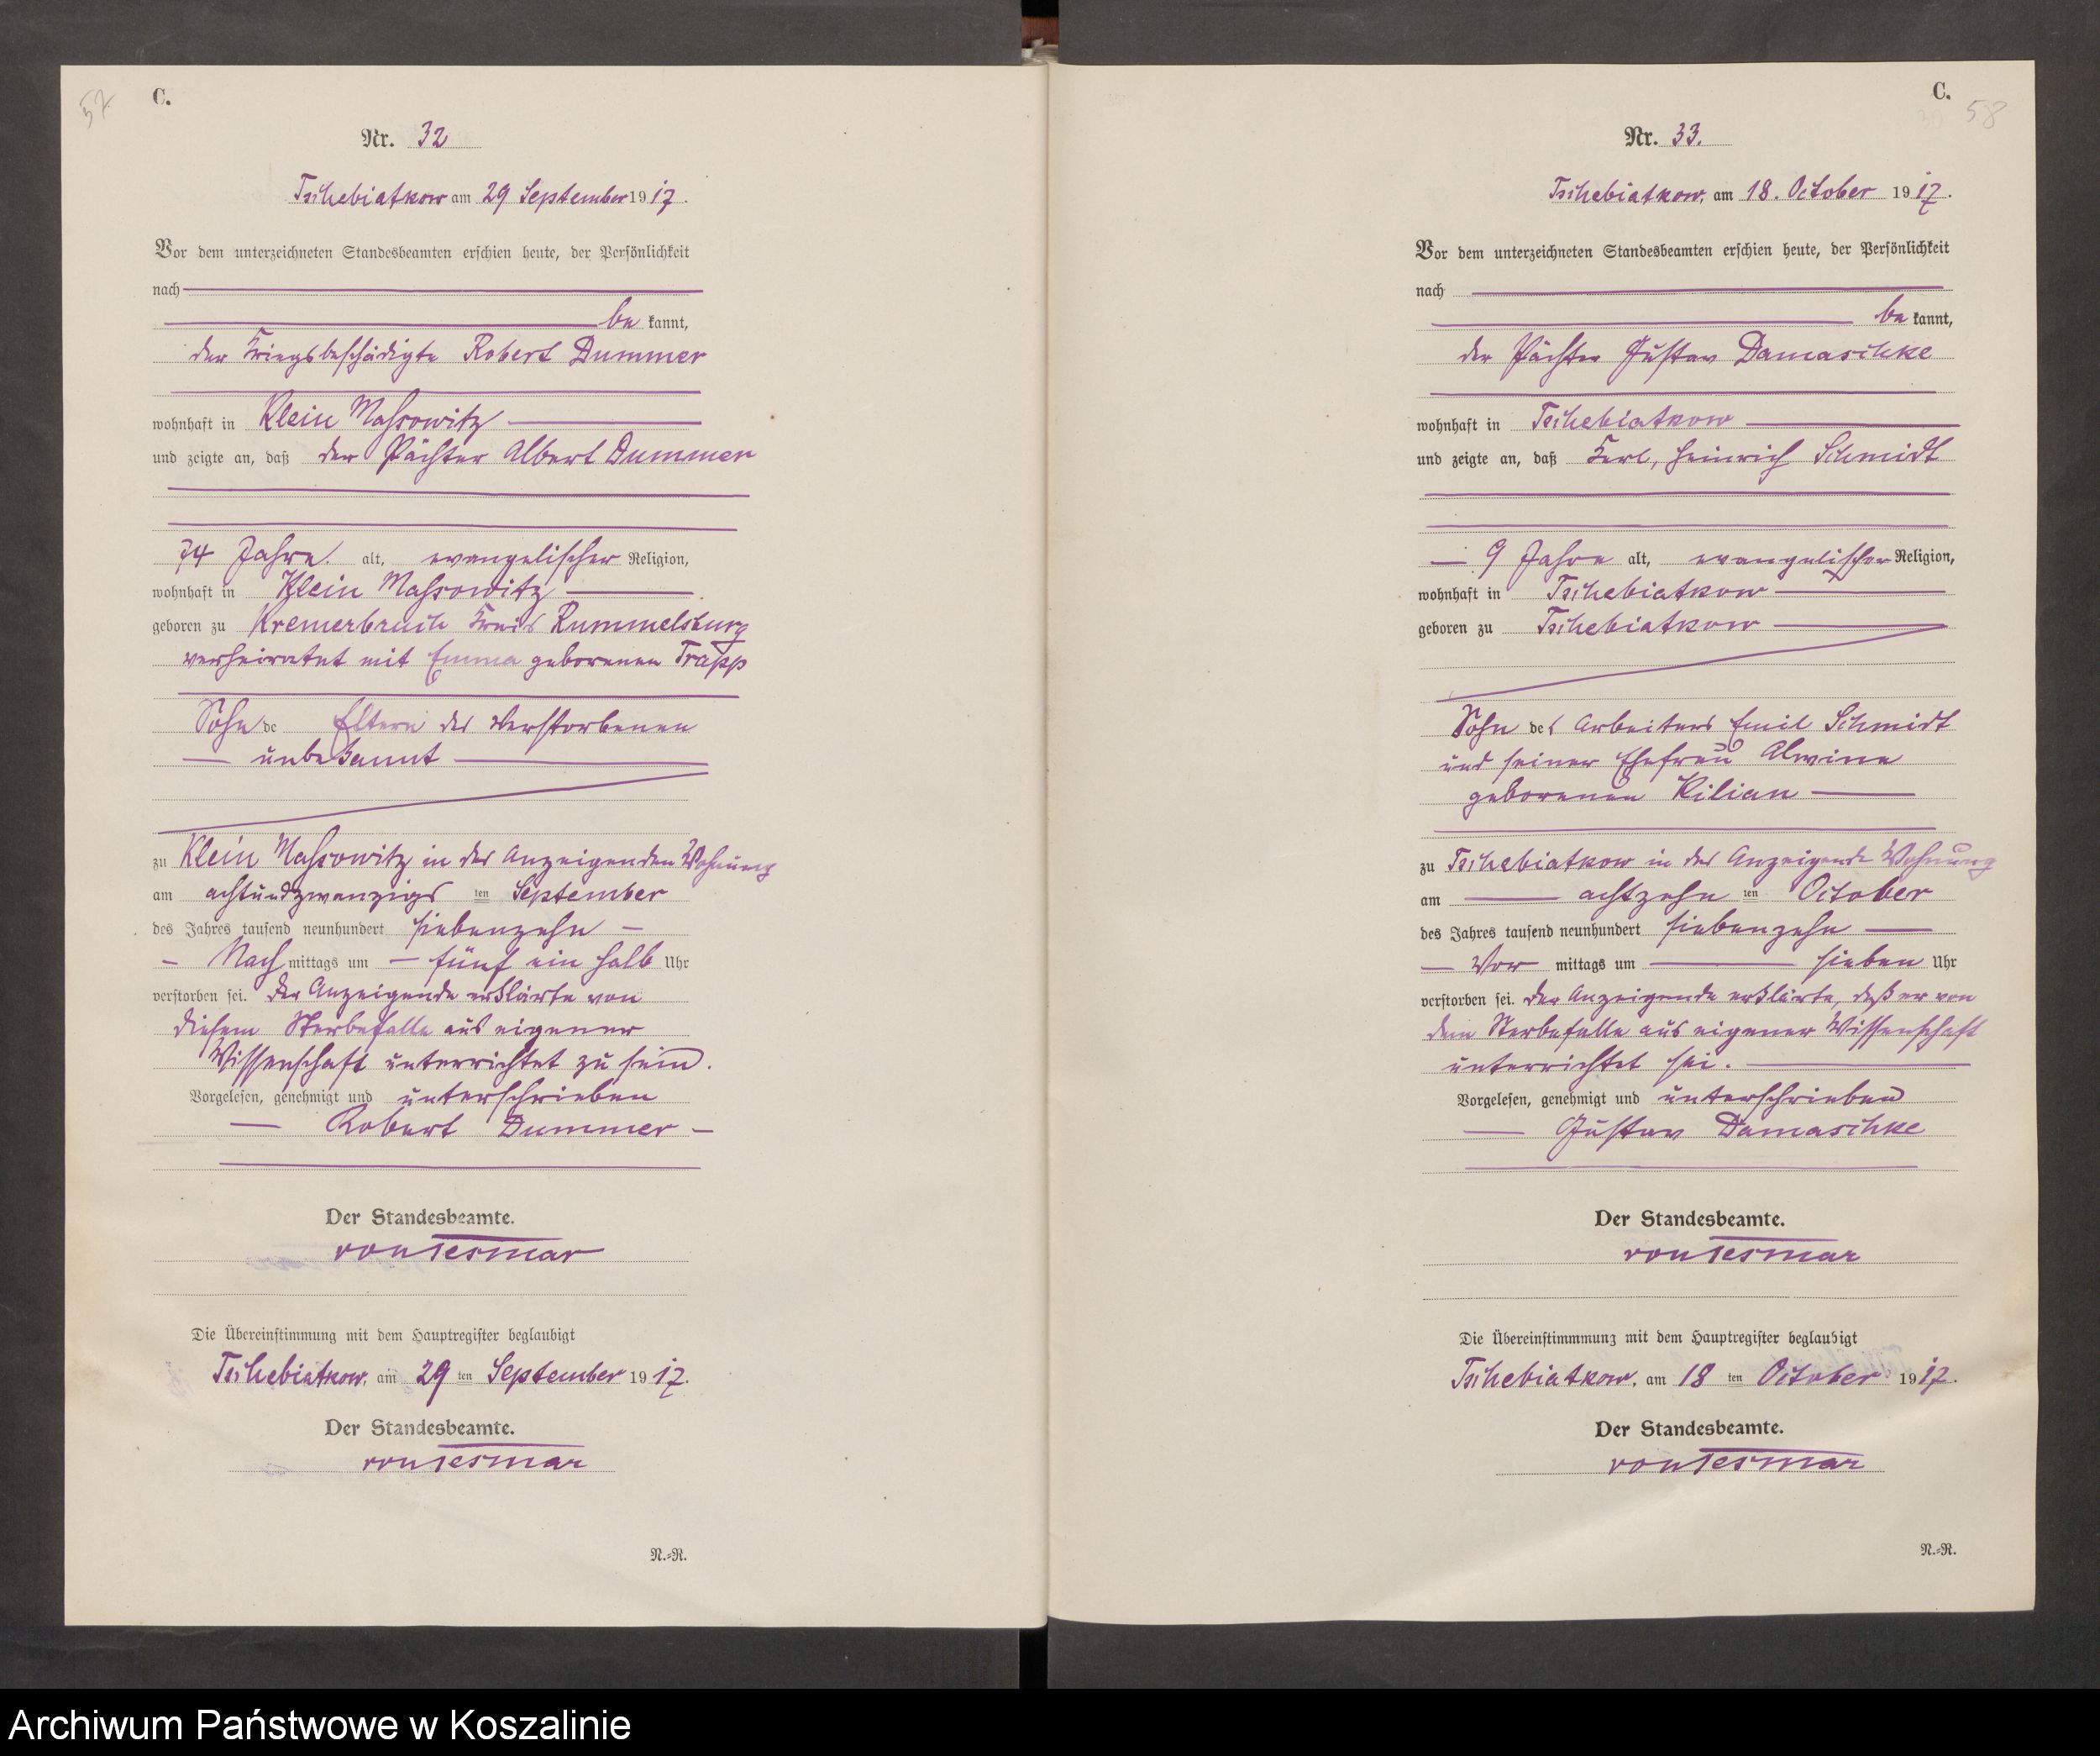 57
C.
Nr. 32
Tschebiatkow am 29 September 1917.
Vor dem unterzeichneten Standesbeamten erschien heute, der Persönlichkeit
nach
be kannt,
der Kriegsbeschädigte Robert Dummer
wohnhaft in Klein Massowitz
und zeigte an, daß der Pächter Albert Dummer
74 Jahre. alt, evangelischer Religion,
wohnhaft in Klein Massowitz
geboren zu Kremerbruch Kreis Rummelsburg
verheiratet mit Emma geborenen Trapp
Sohn de Eltern des Verstorbenen
unbekannt
zu Klein Massowitz in des Anzeigenden Wohnung
am achtundzwanzigs ten September
des Jahres tausend neunhundert siebenzehn
Nach mittags um fünf ein halb Uhr
verstorben sei. Der Anzeigende erklärte von
diesem Sterbefalle aus eigener
Wissenschaft unterrichtet zu sein.
Vorgelesen, genehmigt und unterschrieben
Robert Dummer
Der Standesbeamte.
von Tesmar
Die Übereinstimmung mit dem Hauptregister beglaubigt
Tschebiatkow, am 29 ten September 1917.
Der Standesbeamte.
von Tesmar
N.=R.
C.
58
Nr. 33.
Tschebiatkow, am 18. October 1917.
Vor dem unterzeichneten Standesbeamten erschien heute, der Persönlichkeit
nach
be kannt,
der Pächter Gustav Damaschke
wohnhaft in Tschebiatkow
und zeigte an, daß Karl, Heinrich Schmidt
9 Jahre alt, evangelischer Religion,
wohnhaft in Tschebiatkow
geboren zu Tschebiatkow
Sohn des Arbeiters Emil Schmidt
und seiner Ehefrau Alwine
geborenen Kilian
zu Tschebiatkow in des Anzeigende Wohnung
am achtzehn ten October
des Jahres tausend neunhundert siebenzehn
Vor mittags um sieben Uhr
verstorben sei. Der Anzeigende erklärte, daß er von
dem Sterbefalle aus eigener Wissenschaft
unterrichtet sei.
Vorgelesen, genehmigt und unterschrieben
Gustav Damaschke
Der Standesbeamte.
von Tesmar
Die Übereinstimmmung mit dem Hauptregister beglaubigt
Tschebiatkow, am 18 ten October 1917.
Der Standesbeamte.
von Tesmar
N.=R.
Archiwum Państwowe w Koszalinie